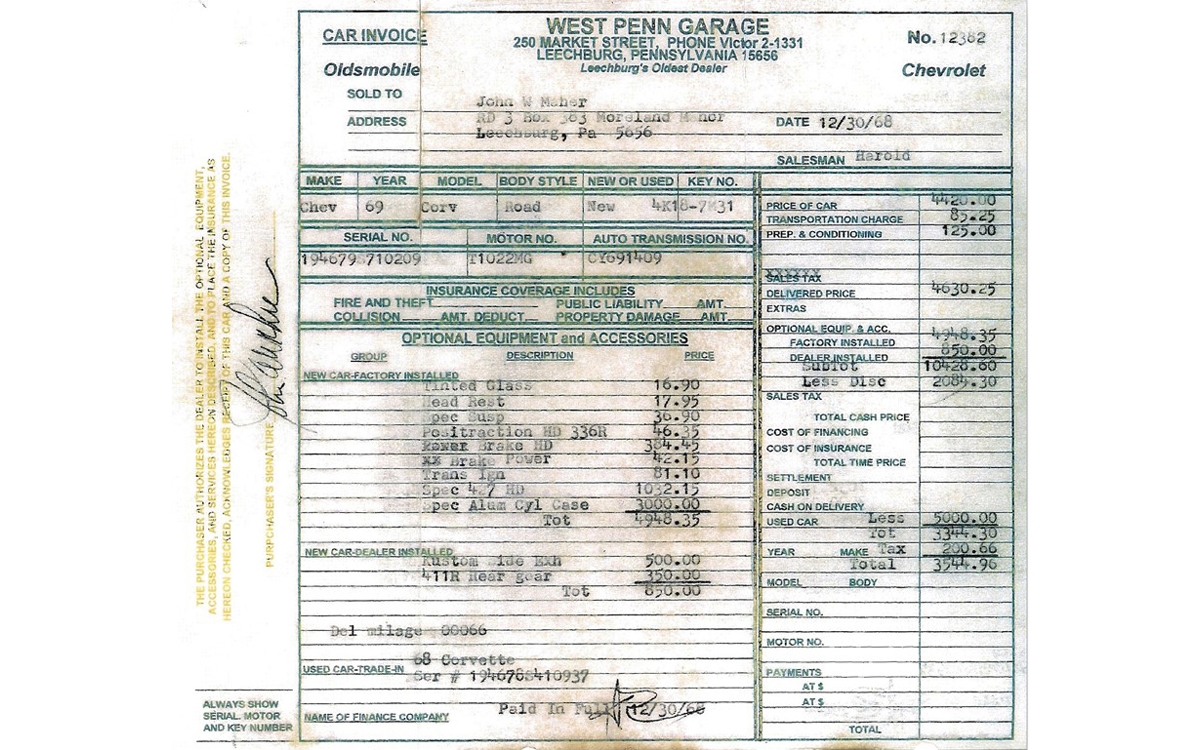 WEST PENN GARAGE
250 MARKET STREET, PHONE Victor 2-1331
LEECHBURG, PENNSYLVANIA 15656
Leechburg's Oldest Dealer
CAR INVOICE
Oldsmobile
No. 12382
Chevrolet
SOLD TO John W Maher
ADDRESS RD 3 Box 383 Moreland Manor
Leechburg, Pa 5656
DATE 12/30/68
SALESMAN Harold
MAKE YEAR MODEL BODY STYLE NEW OR USED KEY NO.
Chev 69 Corv Road New 4K18-7M31
SERIAL NO. MOTOR NO. AUTO TRANSMISSION NO.
194679S710209 T1022MG CY691409
INSURANCE COVERAGE INCLUDES
FIRE AND THEFT PUBLIC LIABILITY AMT.
COLLISION AMT. DEDUCT. PROPERTY DAMAGE AMT.
OPTIONAL EQUIPMENT and ACCESSORIES
GROUP DESCRIPTION PRICE
NEW CAR-FACTORY INSTALLED
Tinted Glass 16.90
Head Rest 17.95
Spec Susp 36.90
Positraction HD 336R 46.35
Power Brake HD 384.45
xx Brake Power 42.15
Trans Ign 81.10
Spec 427 HD 1032.15
Spec Alum Cyl Case 3000.00
Tot 4948.35
NEW CAR-DEALER INSTALLED
Kustom Side Exh 500.00
411R Rear gear 350.00
Tot 850.00
Del milage 00066
USED CAR-TRADE-IN 68 Corvette
Ser # 194678S410937
NAME OF FINANCE COMPANY Paid In Full 12/30/68
PRICE OF CAR 4420.00
TRANSPORTATION CHARGE 85.25
PREP. & CONDITIONING 125.00
xxxxxx
SALES TAX
DELIVERED PRICE 4630.25
EXTRAS
OPTIONAL EQUIP. & ACC.
FACTORY INSTALLED 4948.35
DEALER INSTALLED 850.00
SubTot 10428.60
Less Disc 2084.30
SALES TAX
TOTAL CASH PRICE
COST OF FINANCING
COST OF INSURANCE
TOTAL TIME PRICE
SETTLEMENT
DEPOSIT
CASH ON DELIVERY
USED CAR Less 5000.00
Tot 3344.30
YEAR MAKE Tax 200.66
Total 3544.96
MODEL BODY
SERIAL NO.
MOTOR NO.
PAYMENTS
AT $
AT $
TOTAL
THE PURCHASER AUTHORIZES THE DEALER TO INSTALL THE OPTIONAL EQUIPMENT,
ACCESSORIES, AND SERVICES HEREON DESCRIBED, AND TO PLACE THE INSURANCE AS
HEREON CHECKED, ACKNOWLEDGES RECEIPT OF THIS CAR AND A COPY OF THIS INVOICE.
PURPCHASER'S SIGNATURE
ALWAYS SHOW
SERIAL. MOTOR
AND KEY NUMBER